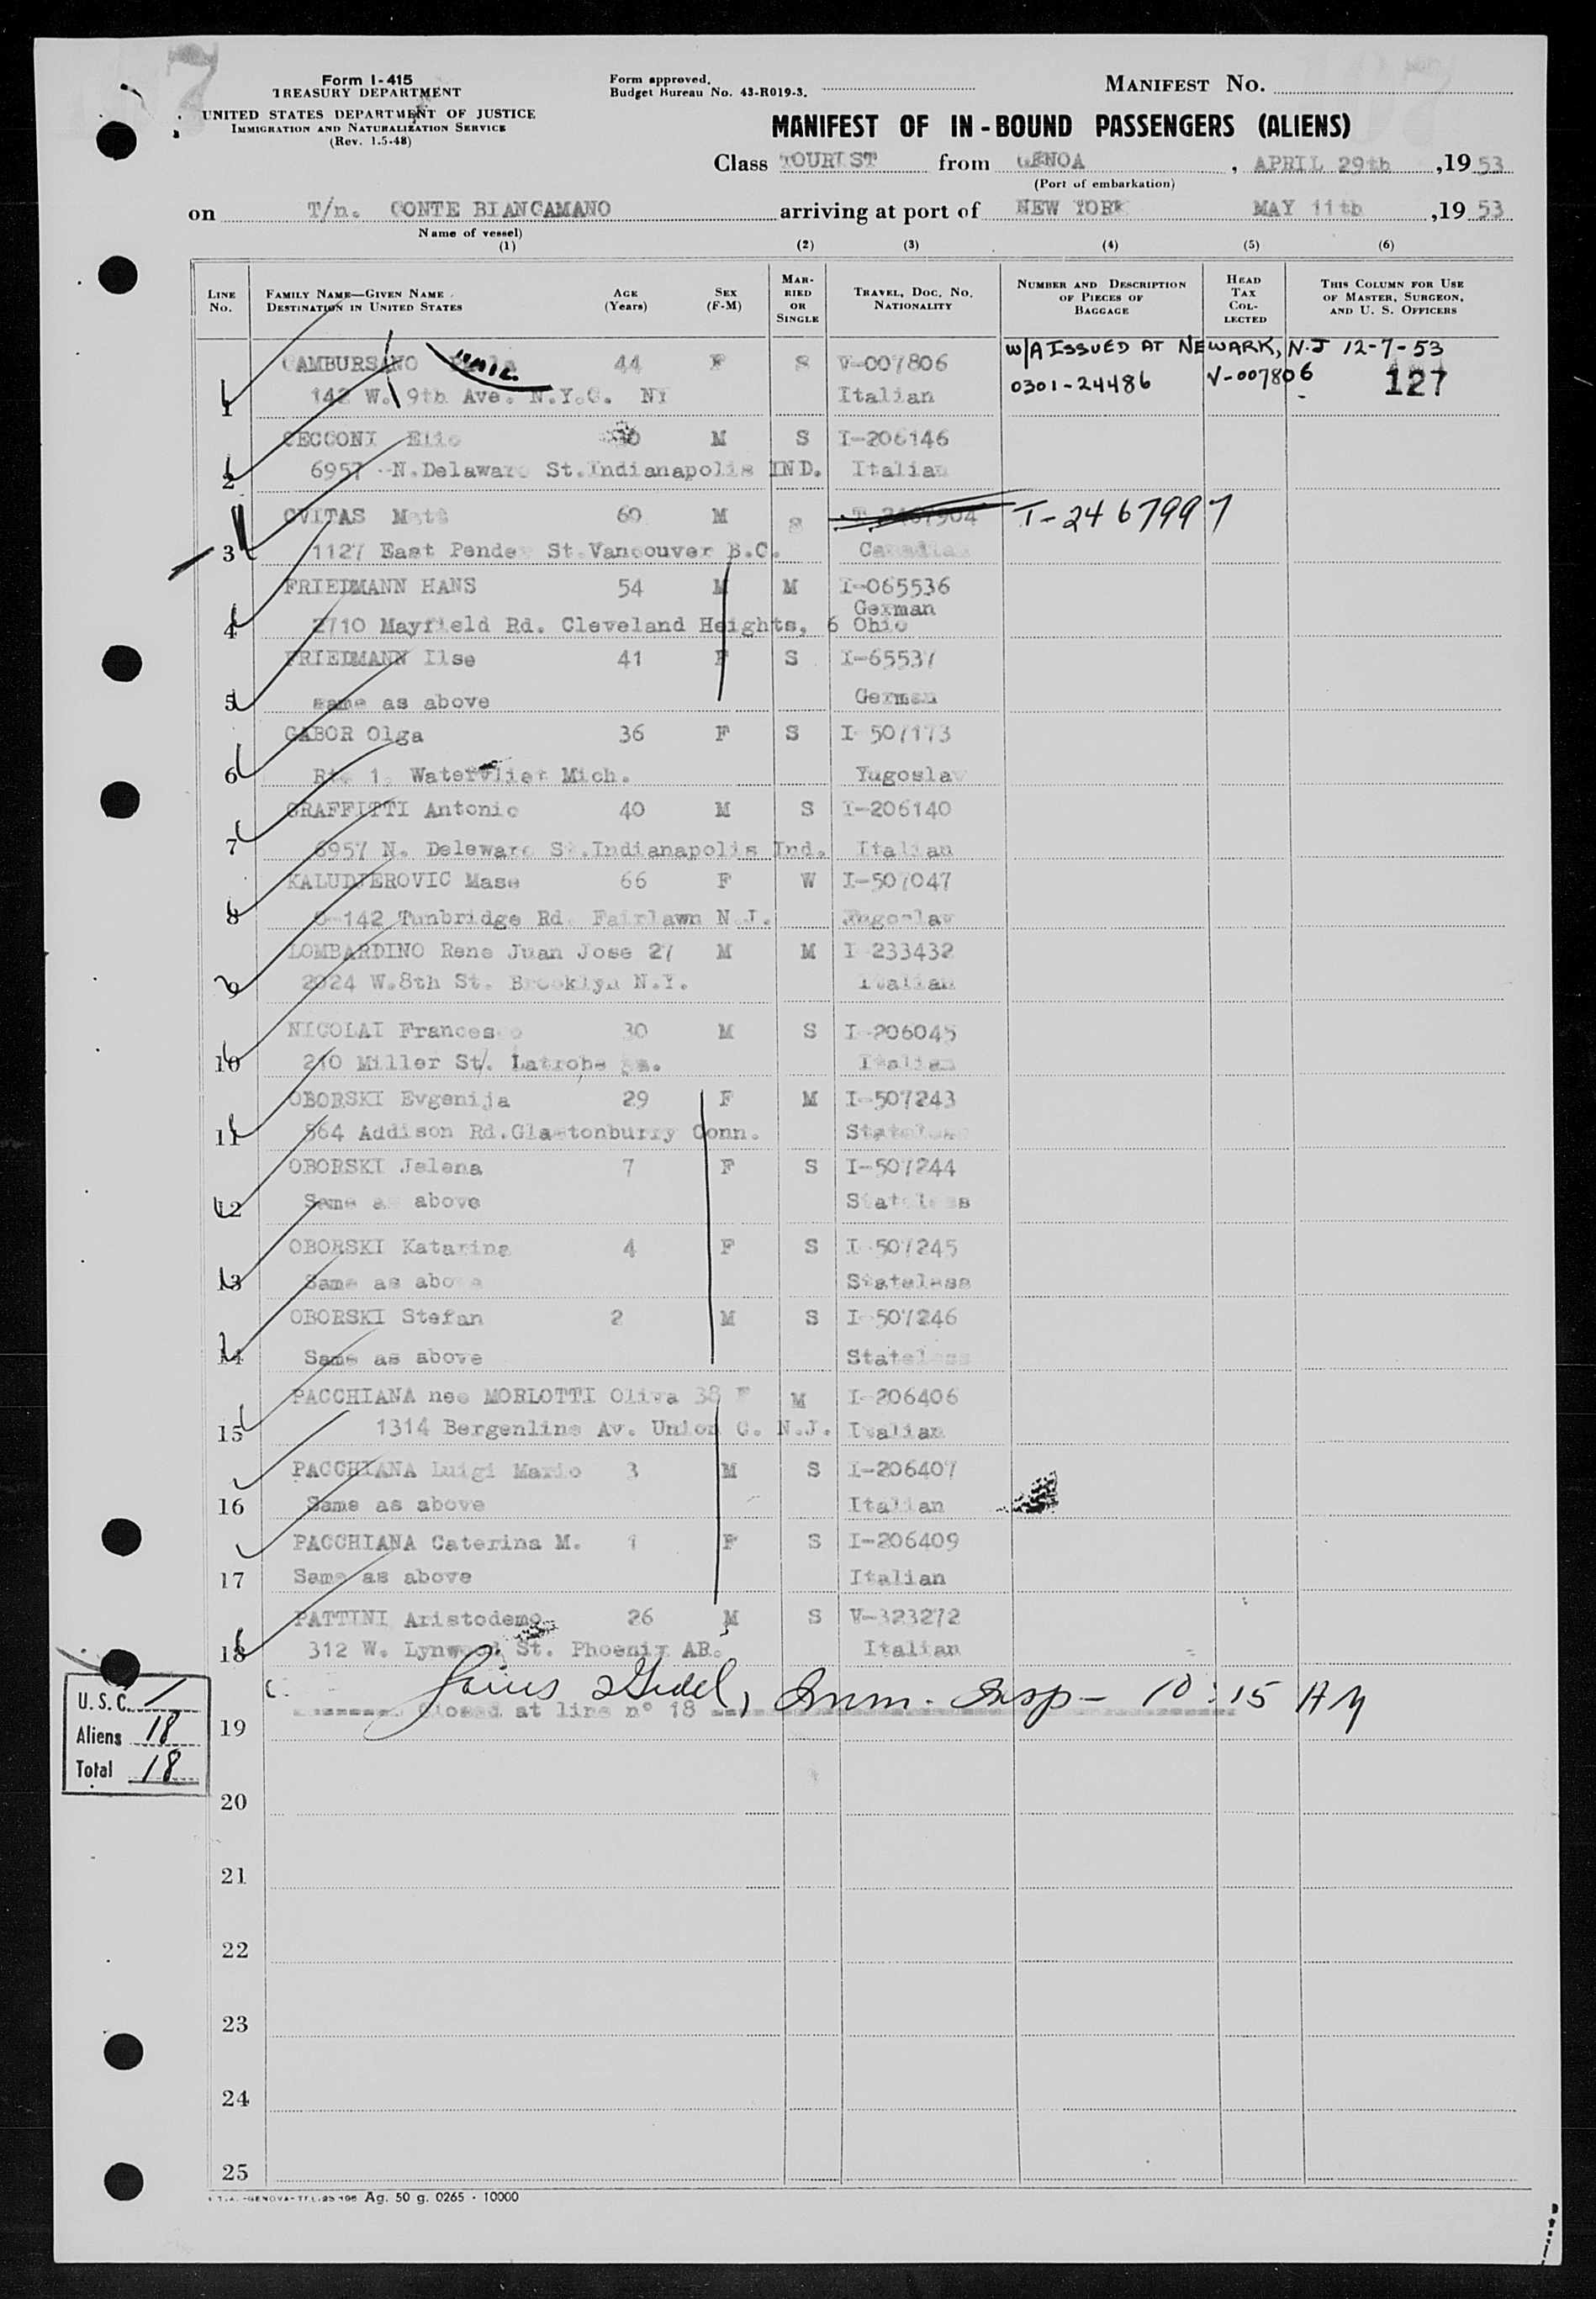 Form I-415
TREASURY DEPARTMENT
UNITED STATES DEPARTMENT OF JUSTICE
IMMIGRATION AND NATURALIZATION SERVICE
(Rev. 1-5-48)
Form approved.
Budget Bureau No. 43-R019-3.
MANIFEST No.
MANIFEST OF IN-BOUND PASSENGERS (ALIENS)
Class TOURIST from GENOA, APRIL 29th, 1953
(Port of embarkation)
on T/n. CONTE BIANCAMANO arriving at port of NEW YORK MAY 11th, 1953
Name of vessel)
(1) (2) (3) (4) (5) (6)
LINE No. FAMILY NAME—GIVEN NAME DESTINATION IN UNITED STATES AGE (Years) SEX (F-M) MARRIED OR SINGLE TRAVEL, DOC, NO. NATIONALITY NUMBER AND DESCRIPTION OF PIECES OF BAGGAGE HEAD TAX COLLECTED THIS COLUMN FOR USE OF MASTER, SURGEON, AND U. S. OFFICERS
CAMBURSANO 44 F S V-007806 W/A ISSUED AT NEWARK, N.J 12-7-53
1 142 W. 9th Ave. N.Y.C. NY Italian 0301-24486 V-007806 127
CECCONI Elio M S I-206146
2 6957 N.Delaware St.Indianapolis IND. Italian
CVITAS Mate 60 M S T-2467997
3 1127 East Pender St.Vancouver B.C. Canadian
FRIEDMANN HANS 54 M M I-065536
German
4 2710 Mayfield Rd. Cleveland Heights, 6 Ohio
FRIEDMANN Ilse 41 F S I-65537
5 same as above German
GABOR Olga 36 F S I 507173
6 Rte 1, Watervliet Mich. Yugoslav
GRAFFITTI Antonio 40 M S I-206140
7 6957 N. Deleware St.Indianapolis Ind. Italian
KALUDJEROVIC Mase 66 F W I-507047
8 0-142 Tunbridge Rd. Fairlawn N.J. Yugoslav
LOMBARDINO Rene Juan Jose 27 M M I 233432
9 2024 W.8th St. Brooklyn N.Y. Italian
NICOLAI Francesco 30 M S I-206045
10 210 Miller St. Latrobe Pa. Italian
OBORSKI Evgenija 29 F M I-507243
11 864 Addison Rd.Glastonburry Conn. Stateless
OBORSKI Jelena 7 F S I-507244
12 Same as above Stateless
OBORSKI Katarina 4 F S I-507245
13 Same as above Stateless
OBORSKI Stefan 2 M S I-507246
14 Same as above Stateless
PACCHIANA nee MORLOTTI Oliva 38 F M I-206406
15 1314 Bergenline Av. Union C. N.J. Italian
PACCHIANA Luigi Mario 3 M S I-206407
16 Same as above Italian
PACCHIANA Caterina M. 1 F S I-206409
17 Same as above Italian
PATTINI Aristodemo 26 M S V-323272
18 312 W. Lynwood St. Phoenix AR. Italian
Imm. Insp - 10:15 AM
19 Closed at line n° 18
U.S.C. /
Aliens 18
Total 18
20
21
22
23
24
25
Ag. 50 g. 0265 - 10000